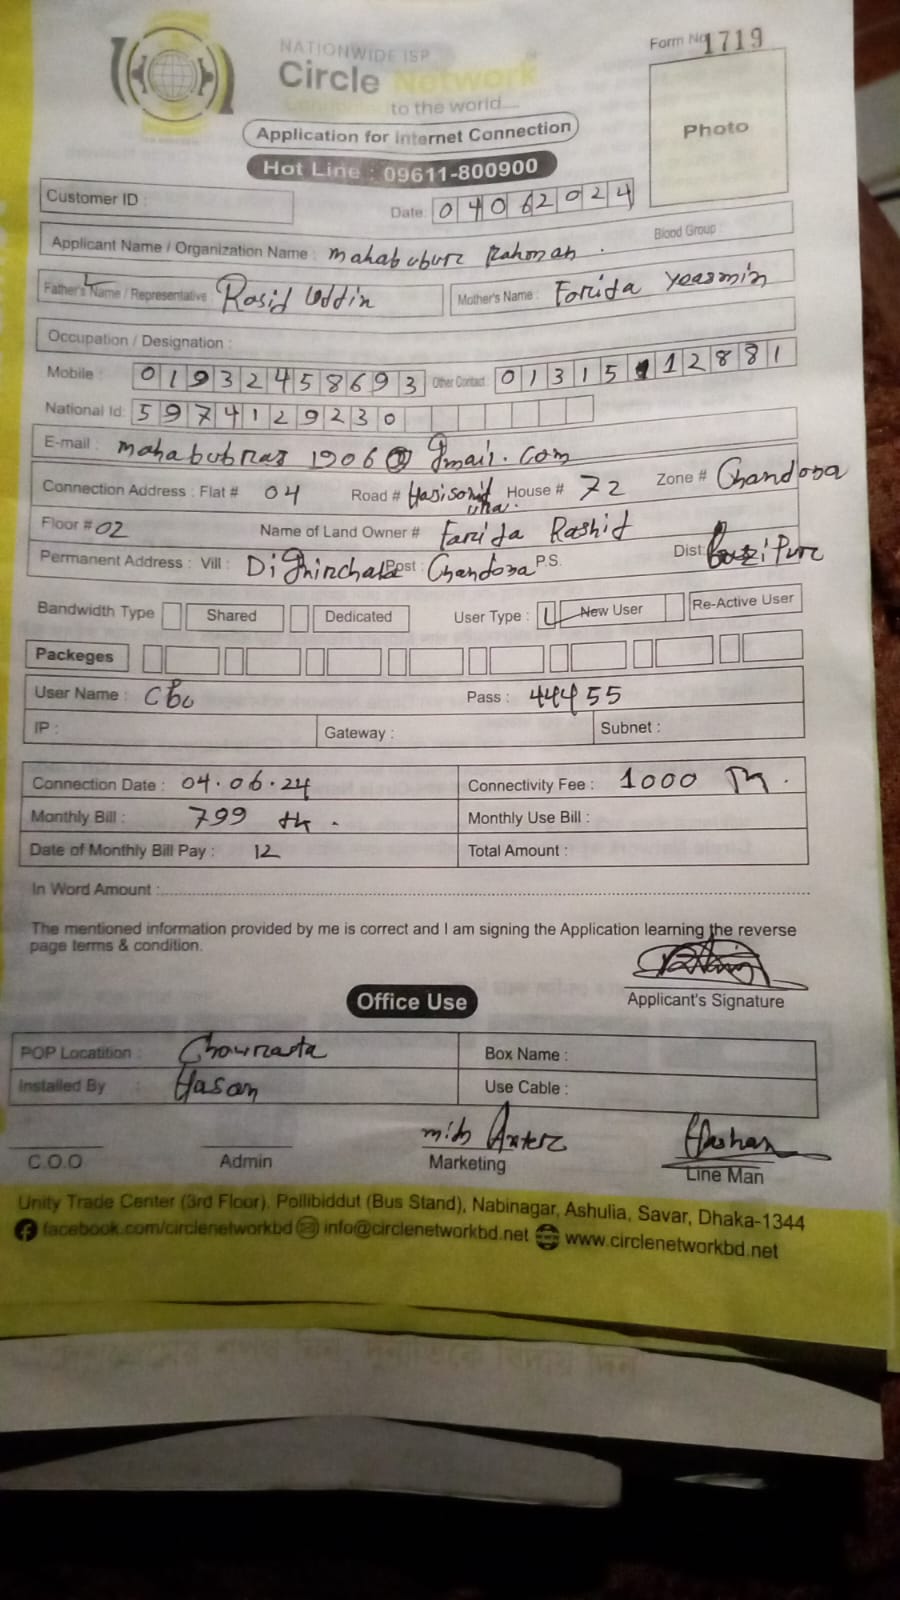 NATIONWIDE ISP
Form No 1719
Circle Network
Connecting to the world....
Photo
Application for Internet Connection
Hot Line : 09611-800900
Customer ID :
Date: 04062024
Applicant Name / Organization Name : mahabubur Rahman . Blood Group :
Father's Name / Representative : Rasid Uddin Mother's Name : Farida Yeasmin
Occupation / Designation :
Mobile : 01932458693 Other Contact : 01315112881
National Id: 5974129230
E-mail : mahabubraz1906@gmail.com
Connection Address : Flat # 04 Road # House # 72 Zone # Chandona
Floor # 02 Name of Land Owner # Farida Rashid
Permanent Address : Vill : Dighirchala Post : Chandona P.S. Dist: Gazipur
Bandwidth Type Shared Dedicated User Type : New User Re-Active User
Packeges
User Name : Pass : 44455
IP : Gateway : Subnet :
Connection Date : 04.06.24 Connectivity Fee : 1000 Tk.
Monthly Bill : 799 tk. Monthly Use Bill :
Date of Monthly Bill Pay : 12 Total Amount :
In Word Amount :
The mentioned information provided by me is correct and I am signing the Application learning the reverse
page terms & condition.
Applicant's Signature
Office Use
POP Locatition : Chowrasta Box Name :
Installed By : Hasan Use Cable :
C.O.O Admin Marketing Line Man
Unity Trade Center (3rd Floor), Pollibiddut (Bus Stand), Nabinagar, Ashulia, Savar, Dhaka-1344
facebook.com/circlenetworkbd info@circlenetworkbd.net www.circlenetworkbd.net